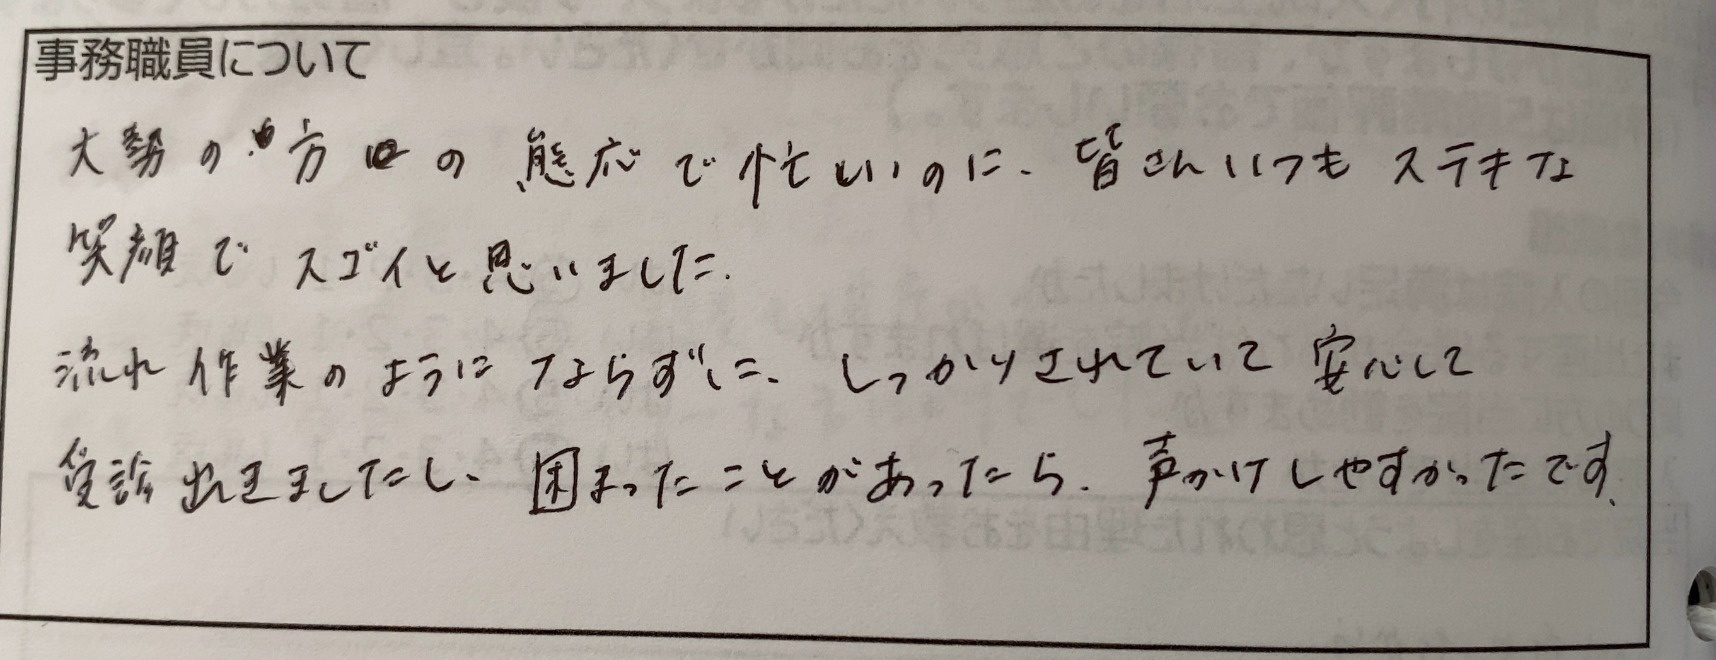 事務職員について
大勢の方の態応で忙しいのに、皆さんいつもステキな
笑顔でスゴイと思いました。
流れ作業のようにならずに、しっかりされていて安心して
受診出来ましたし、困ったことがあったら、声かけしやすかったです。